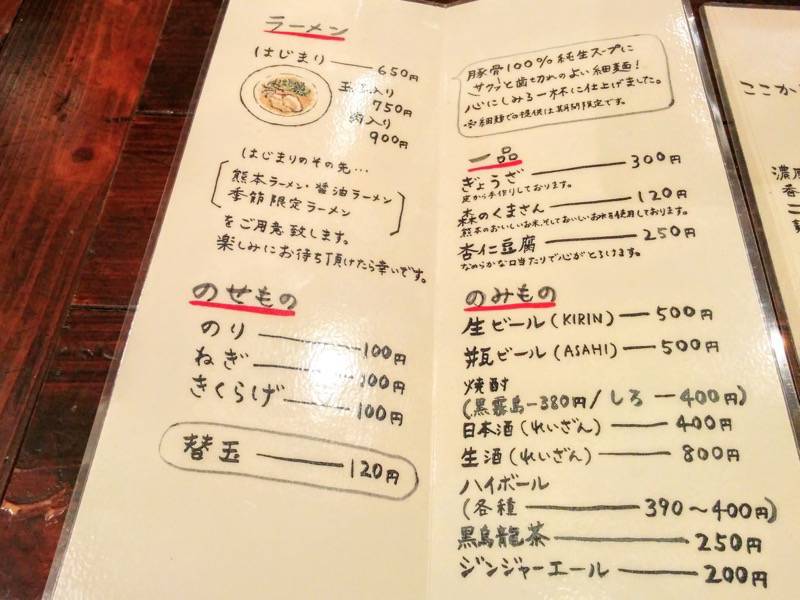 ラーメン
はじまり 650円
玉子入り
750円
肉入り
900円
はじまりのその先…
熊本ラーメン・醤油ラーメン
季節限定ラーメン
をご用意致します。
楽しみにお待ち頂けたら幸いです。
のせもの
のり 100円
ねぎ 100円
きくらげ 100円
替玉 120円
豚骨100%純生スープに
サクッと歯切れのよい細麺!
心にしみる一杯に仕上げました。
※細麺での提供は期間限定です。
一品
ぎょうざ 300円
皮から手作りしております。
森のくまさん 120円
熊本のおいしいお米、そしておいしいお水を使用しております。
杏仁豆腐 250円
なめらかな口当たりで心がとろけます。
のみもの
生ビール(KIRIN) 500円
瓶ビール(ASAHI) 500円
焼酎
(黒霧島ー380円/しろ ー400円)
日本酒(れいざん) 400円
生酒(れいざん) 800円
ハイボール
(各種 390〜400円)
黒烏龍茶 250円
ジンジャーエール 200円
ここか
濃厚